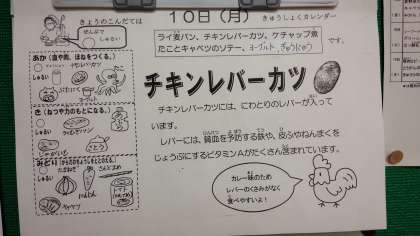 きょうのこんだては
ぜんぶで
しゅるい
10日(月)
きゅうしょくカレンダー
ライ麦パン、チキンレバーカツ、ケチャップ煮
たことキャベツのソテー、ヨーグルト、ぎゅうにゅう
です。
あか(血や肉、ほねをつくる。)
しゅるい
ヨーグルト
き(ねつや力のもとになる。)
しゅるい
じゃがいも
さとう
みどり
しゅるい
たまねぎ
にんじん
キャベツ
チキンレバーカツ
チキンレバーカツには、にわとりのレバーが入って
います。
レバーには、貧血を予防する鉄や、皮ふやねんまくを
じょうぶにするビタミンAがたくさん含まれています。
カレー味のため
レバーのくさみがなく
食べやすいよ!